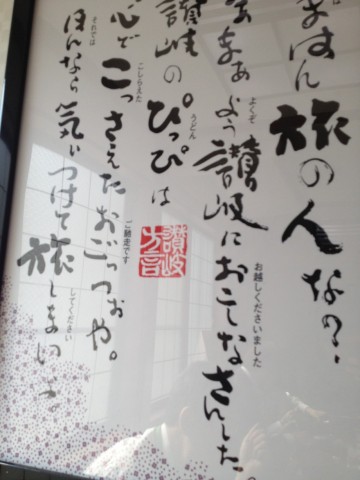 まはん旅の人なの?
まあまあよう讃岐におこしなさんした。
よくぞ
お越しくださいました
讃岐のぴっぴは
うどん
讃岐方言
心でこっさえたおごっつぉや。
こしらえた
ご馳走です
ほんなら気ぃつけて旅しまいよ
それでは
してください